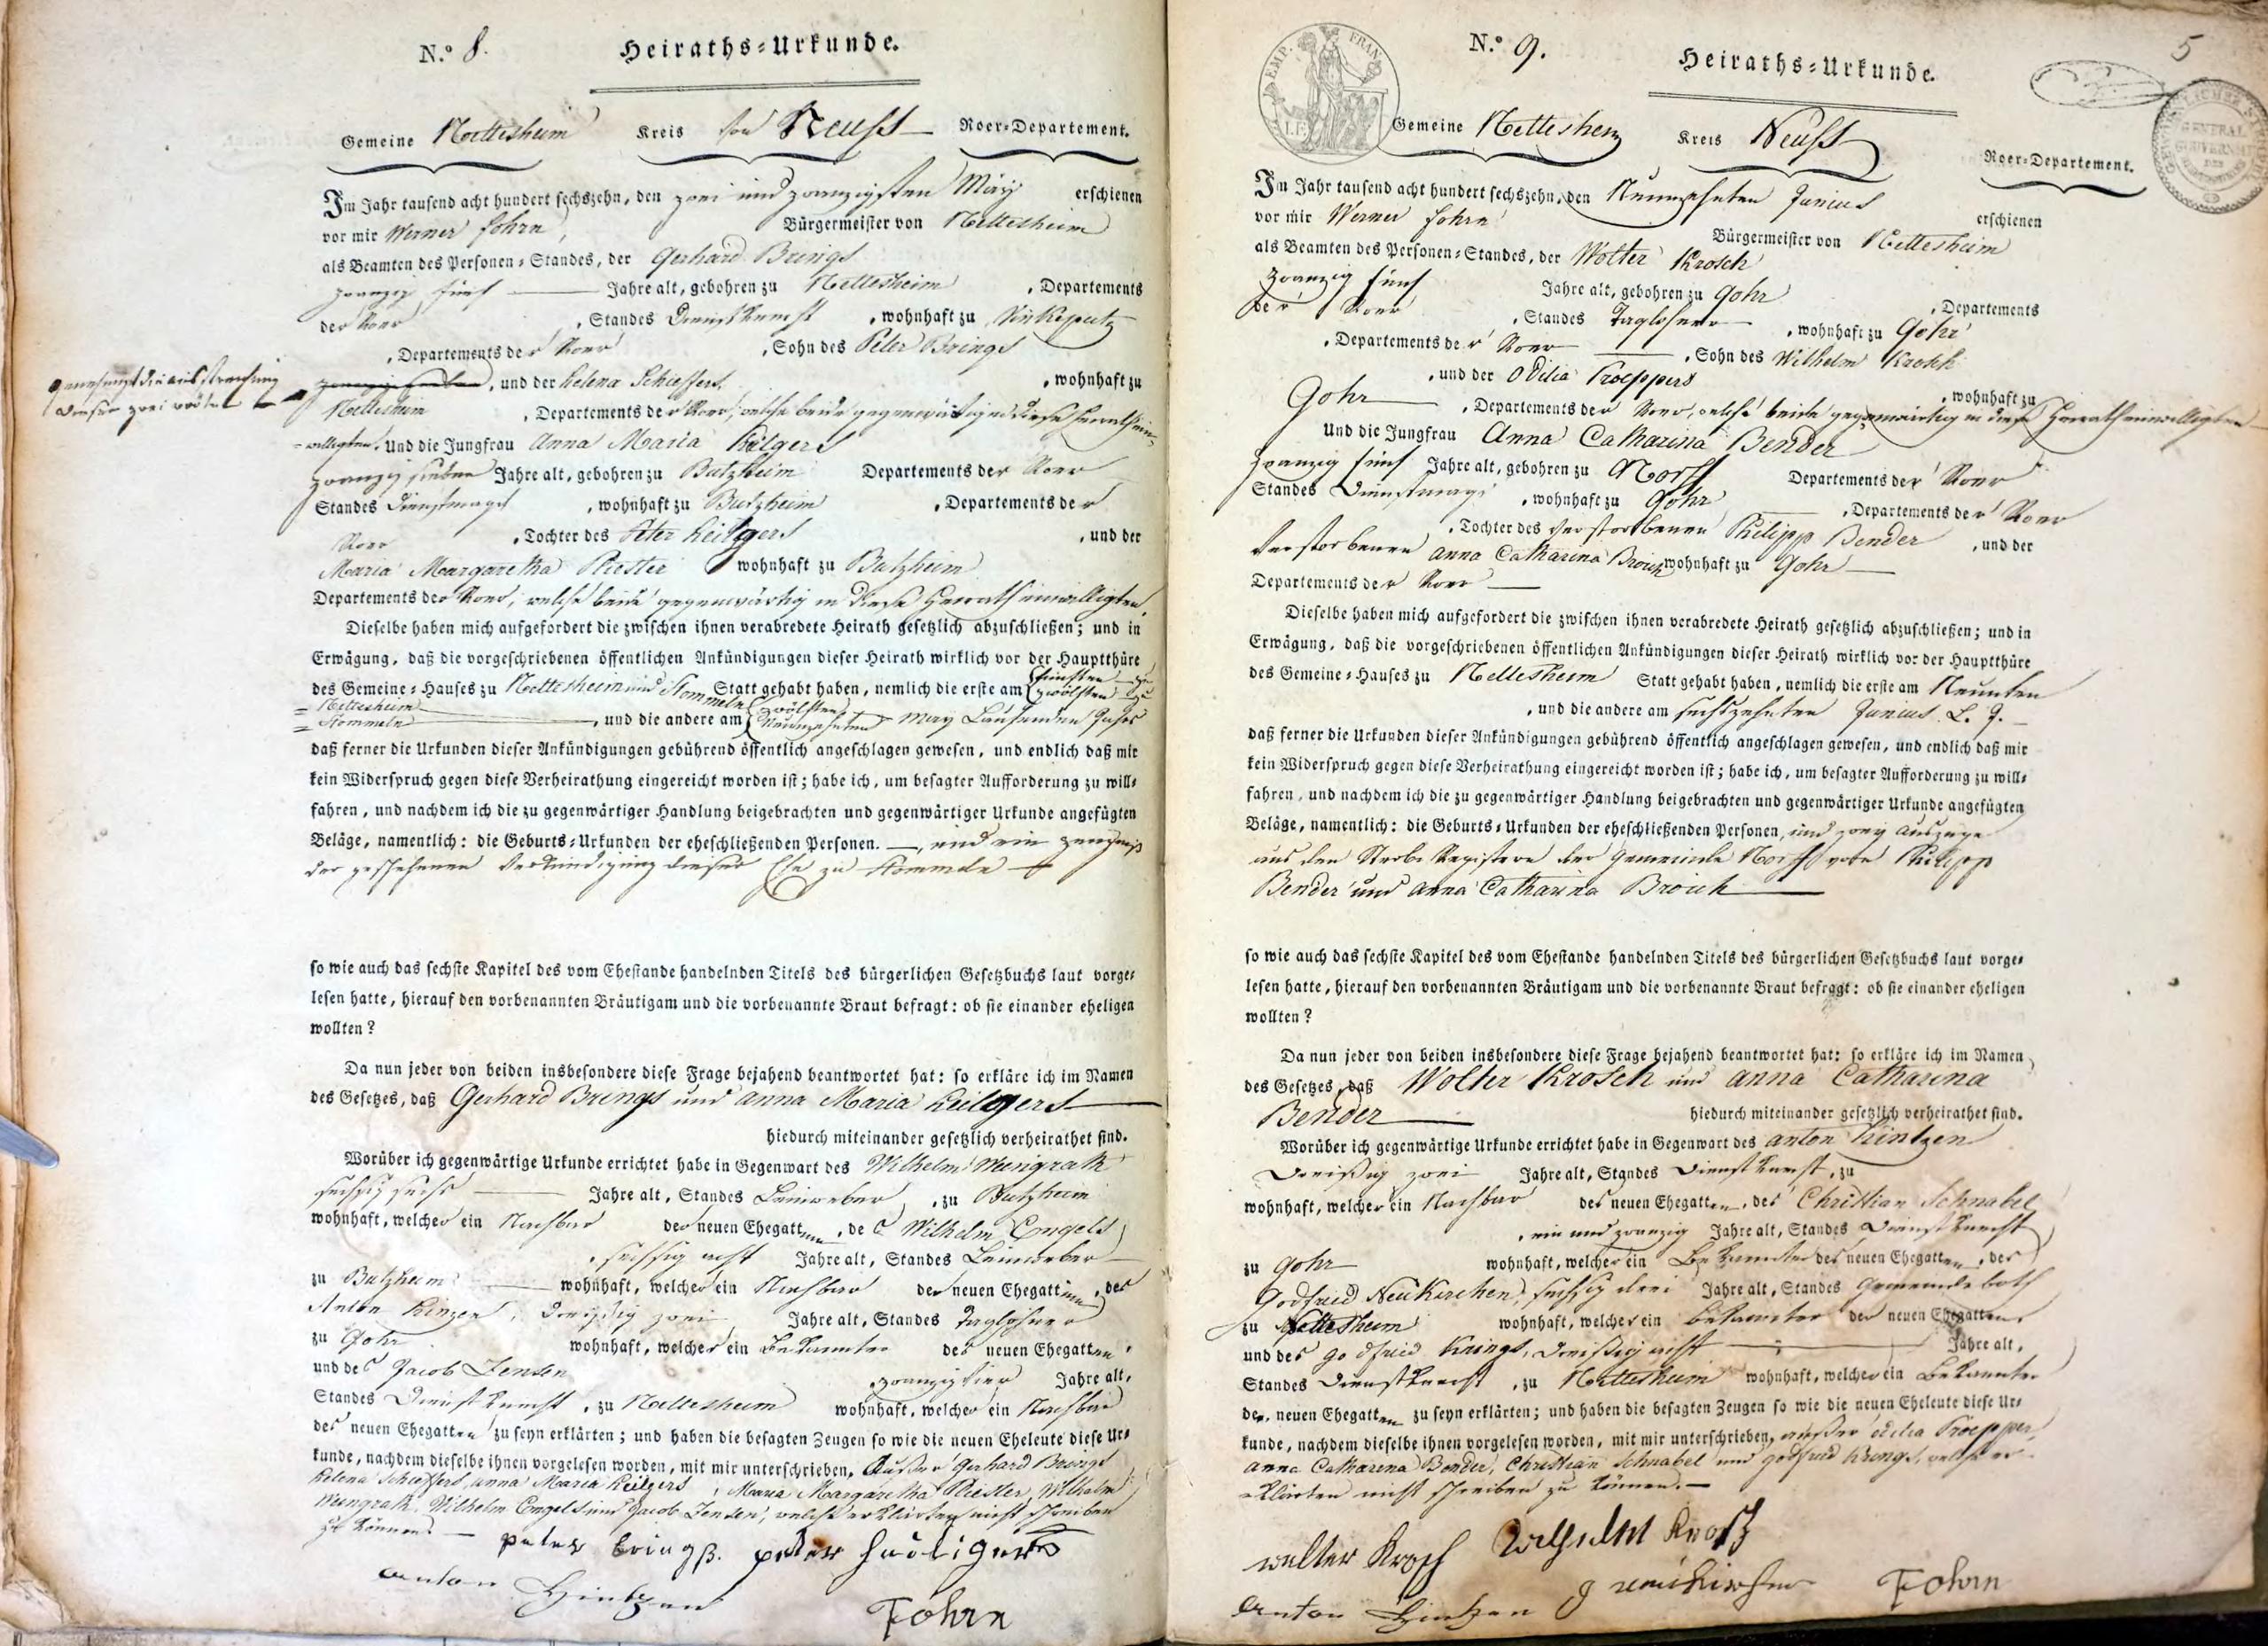 N.º 8.
Heiraths-Urkunde.
Gemeine Nettesheim Kreis von Neuss Roer-Departement.
Im Jahr tausend acht hundert sechszehn, den zwei und zwanzigsten May erschienen
vor mir Werner Fohrn, Bürgermeister von Nettesheim
als Beamten des Personen-Standes, der Gerhard Brings
zwanzig fünf Jahre alt, gebohren zu Nettesheim, Departements
der Roer, Standes Dienstknecht, wohnhaft zu
, Departements der Roer, Sohn des Peter Brings
, und der Helena Schieffers, wohnhaft zu
Nettesheim, Departements der Roer, welche beide gegenwärtig in diese Heirath ein-
willigten. Und die Jungfrau Anna Maria Heilgers
zwanzig sieben Jahre alt, gebohren zu Butzheim Departements der Roer
Standes Dienstmagd, wohnhaft zu Butzheim, Departements der
Roer, Tochter des Peter Heilgers, und der
Maria Margaretha wohnhaft zu Butzheim
Departements der Roer, welche beide gegenwärtig in diese Heirath einwilligten.
Dieselbe haben mich aufgefordert die zwischen ihnen verabredete Heirath gesetzlich abzuschließen; und in
Erwägung, daß die vorgeschriebenen öffentlichen Ankündigungen dieser Heirath wirklich vor der Hauptthüre
des Gemeine-Hauses zu Nettesheim und Stommeln Statt gehabt haben, nemlich die erste am fünften zu
zwölften zu
Nettesheim zwölften
Stommeln, und die andere am Neunzehnten May Laufenden Jahrs
daß ferner die Urkunden dieser Ankündigungen gebührend öffentlich angeschlagen gewesen, und endlich daß mir
kein Widerspruch gegen diese Verheirathung eingereicht worden ist; habe ich, um besagter Aufforderung zu will-
fahren, und nachdem ich die zu gegenwärtiger Handlung beigebrachten und gegenwärtiger Urkunde angefügten
Beläge, namentlich: die Geburts-Urkunden der eheschließenden Personen. —, und ein Zeugniß
der geschehenen Verkündigung dieser Ehe zu Stommeln
so wie auch das sechste Kapitel des vom Ehestande handelnden Titels des bürgerlichen Gesetzbuchs laut vorge-
lesen hatte, hierauf den vorbenannten Bräutigam und die vorbenannte Braut befragt: ob sie einander eheligen
wollten?
Da nun jeder von beiden insbesondere diese Frage bejahend beantwortet hat: so erkläre ich im Namen
des Gesetzes, daß Gerhard Brings und Anna Maria Heilgers
hiedurch miteinander gesetzlich verheirathet sind.
Worüber ich gegenwärtige Urkunde errichtet habe in Gegenwart des Wilhelm Meingrath
sechzig sechs Jahre alt, Standes Leinweber, zu Butzheim
wohnhaft, welcher ein Nachbar der neuen Ehegattinn, des Wilhelm Engels
, sechszig acht Jahre alt, Standes Leinweber
zu Butzheim wohnhaft, welcher ein Nachbar der neuen Ehegattinn, des
Anton Hinzen, dreißig zwei Jahre alt, Standes Taglöhner
zu Gohr wohnhaft, welcher ein Bekannter des neuen Ehegatten,
und des Jacob Jensen, zwanzig vier Jahre alt,
Standes Dienstknecht, zu Nettesheim wohnhaft, welcher ein Nachbar
des neuen Ehegatten zu seyn erklärten; und haben die besagten Zeugen so wie die neuen Eheleute diese Ur-
kunde, nachdem dieselbe ihnen vorgelesen worden, mit mir unterschrieben, Außer Gerhard Brings
Helena Schieffers, Anna Maria Heilgers, Maria Margaretha, Wilhelm
Meingrath, Wilhelm Engels und Jacob Jensen, welche erklärten nicht schreiben
zu können. —
peter brings. peter
anton Hintzen
Fohrn
N.º 9.
5
EMP. FRAN
Heiraths-Urkunde.
Gemeine Nettesheim Kreis Neuss Roer-Departement.
Im Jahr tausend acht hundert sechszehn, den Neunzehnten Junius erschienen
vor mir Werner Fohrn Bürgermeister von Nettesheim
als Beamten des Personen-Standes, der Wolter Krosch
zwanzig fünf Jahre alt, gebohren zu Gohr, Departements
der Roer, Standes Taglöhner, wohnhaft zu Gohr
, Departements der Roer, Sohn des Wilhelm Krosch
, und der Odilia Troeppers, wohnhaft zu
Gohr, Departements der Roer, welche beide gegenwärtig in diese Heirath einwilligten
Und die Jungfrau Anna Catharina Bender
zwanzig fünf Jahre alt, gebohren zu Norff Departements der Roer
Standes Dienstmagd, wohnhaft zu Gohr, Departements der Roer
, Tochter des verstorbenen Philipp Bender, und der
verstorbenen Anna Catharina Broich wohnhaft zu Gohr
Departements der Roer
Dieselbe haben mich aufgefordert die zwischen ihnen verabredete Heirath gesetzlich abzuschließen; und in
Erwägung, daß die vorgeschriebenen öffentlichen Ankündigungen dieser Heirath wirklich vor der Hauptthüre
des Gemeine-Hauses zu Nettesheim Statt gehabt haben, nemlich die erste am Neunten
, und die andere am sechszehnten Junius L. J.
daß ferner die Urkunden dieser Ankündigungen gebührend öffentlich angeschlagen gewesen, und endlich daß mir
kein Widerspruch gegen diese Verheirathung eingereicht worden ist; habe ich, um besagter Aufforderung zu will-
fahren, und nachdem ich die zu gegenwärtiger Handlung beigebrachten und gegenwärtiger Urkunde angefügten
Beläge, namentlich: die Geburts-Urkunden der eheschließenden Personen, und zwey Auszüge
aus den Sterbe Registern der Gemeinde Norff von Philipp
Bender und Anna Catharina Broich
so wie auch das sechste Kapitel des vom Ehestande handelnden Titels des bürgerlichen Gesetzbuchs laut vorge-
lesen hatte, hierauf den vorbenannten Bräutigam und die vorbenannte Braut befragt: ob sie einander eheligen
wollten?
Da nun jeder von beiden insbesondere diese Frage bejahend beantwortet hat: so erkläre ich im Namen
des Gesetzes, daß Wolter Krosch und Anna Catharina
Bender hiedurch miteinander gesetzlich verheirathet sind.
Worüber ich gegenwärtige Urkunde errichtet habe in Gegenwart des Anton Hintzen
Dreißig zwei Jahre alt, Standes Dienstknecht, zu
wohnhaft, welcher ein Nachbar des neuen Ehegatten, des Christian Schnabel
, ein und zwanzig Jahre alt, Standes Dienstknecht
zu Gohr wohnhaft, welcher ein Bekannter des neuen Ehegatten, des
Godfried Neukirchen, sechzig drei Jahre alt, Standes Gemeinde both
zu Nettesheim wohnhaft, welcher ein bekannter der neuen Ehegatten,
und des Godfried Krings, Dreißig acht Jahre alt,
Standes Dienstknecht, zu Nettesheim wohnhaft, welcher ein Bekannter
der neuen Ehegatten zu seyn erklärten; und haben die besagten Zeugen so wie die neuen Eheleute diese Ur-
kunde, nachdem dieselbe ihnen vorgelesen worden, mit mir unterschrieben, außer Odilia Troeppers,
Anna Catharina Bender, Christian Schnabel und Godfried Krings, welche er-
klärten nicht schreiben zu können. —
walter Krosch Wilhelm Krosch
anton Hintzen g neukirchen Fohrn